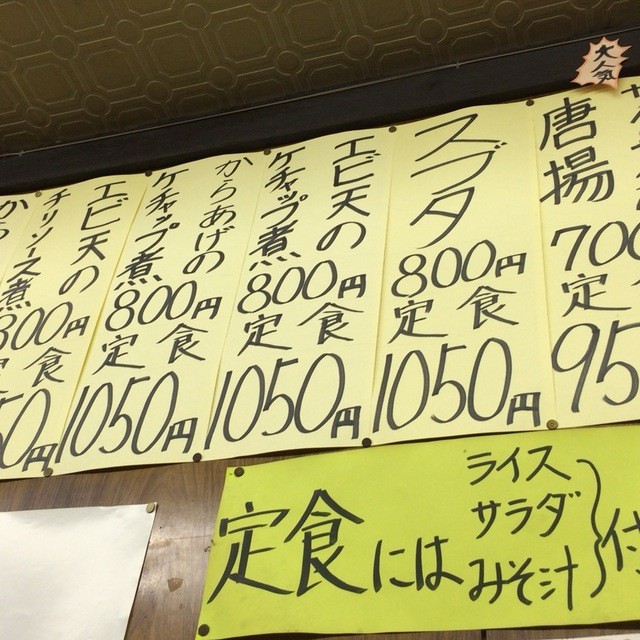 大人気
唐揚
700
定食
95
スブタ
800円
定食
1050円
エビ天の
ケチャップ煮
800円
定食
1050円
からあげの
ケチャップ煮
800円
定食
1050円
エビ天の
チリソース煮
800円
定食
50円
から
定食には
ライス
サラダ
みそ汁
付